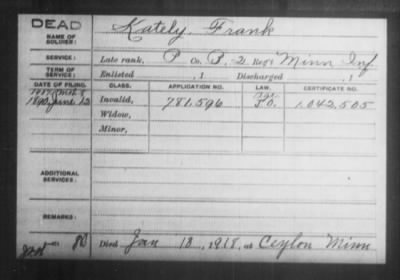 DEAD
NAME OF SOLDIER: Kately, Frank
SERVICE: Late rank, P Co. B, 2 Reg't Minn Inf
TERM OF SERVICE: Enlisted , 1 Discharged , 1
DATE OF FILING. CLASS. APPLICATION NO. LAW. CERTIFICATE NO.
1890, June 12 Invalid, 781,596 1,042,505
Widow,
Minor,
ADDITIONAL SERVICES:
REMARKS:
Died Jan 13, 1918, at Ceylon Minn